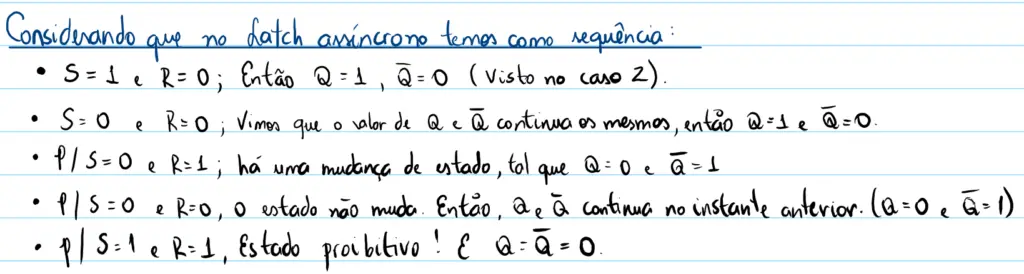 Considerando que no Latch assíncrono temos como sequência:
• S=1 e R=0; Então Q=1, Q̅=0 (Visto no caso 2).
• S=0 e R=0; Vimos que o valor de Q e Q̅ continua os mesmos, então Q=1 e Q̅=0.
• P/ S=0 e R=1; há uma mudança de estado, tal que Q=0 e Q̅=1
• P/ S=0 e R=0, o estado não muda. Então, Q e Q̅ continua no instante anterior. (Q=0 e Q̅=1)
• P/ S=1 e R=1, Estado proibitivo! E Q=Q̅=0.